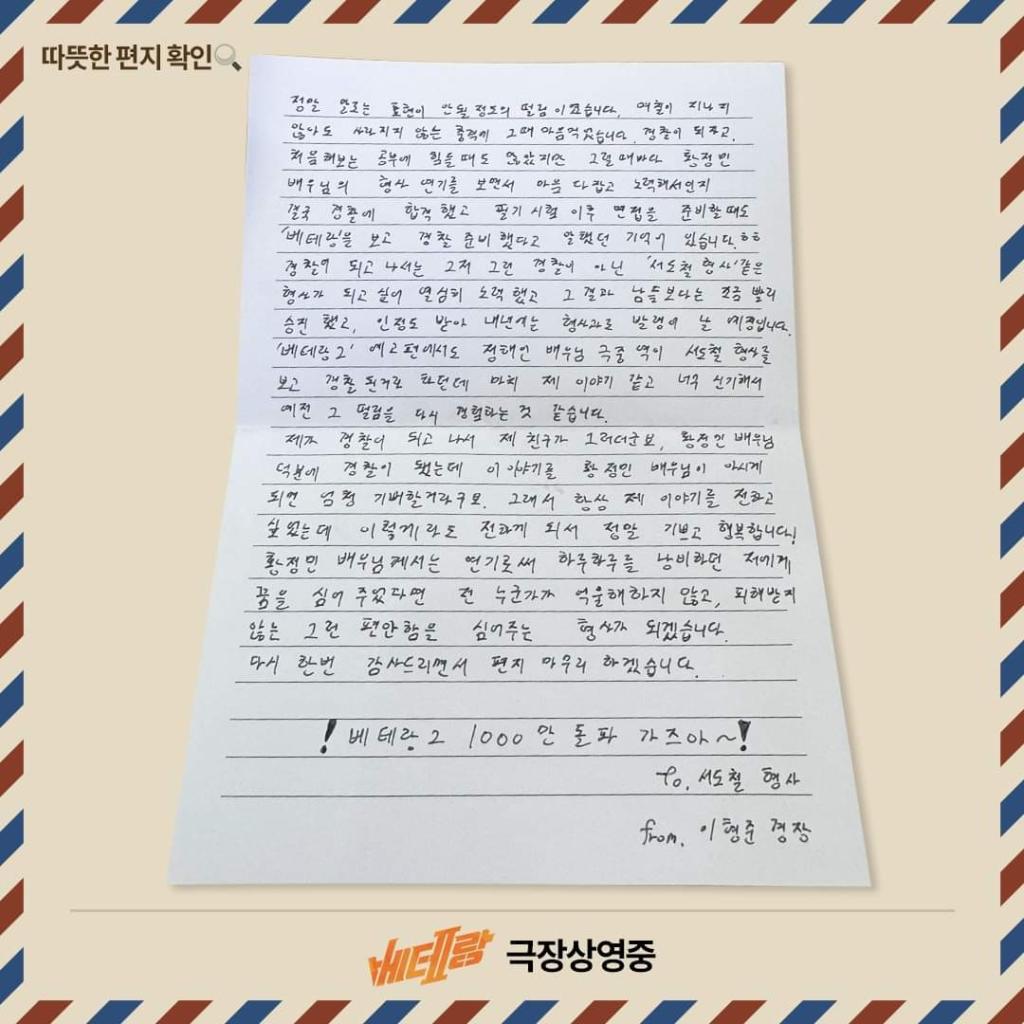 따뜻한 편지 확인
정말 말로는 표현이 안될 정도의 떨림이었습니다. 며칠이 지나지
않아도 사라지지 않는 충격에 그때 마음먹었습니다. 경찰이 되자고.
처음해보는 공부에 힘들때도 많았지만 그럴때마다 황정민
배우님의 형사 연기를 보면서 마음 다잡고 노력해서인지
결국 경찰에 합격했고 필기시험 이후 면접을 준비할때도
'베테랑'을 보고 경찰 준비했다고 말했던 기억이 있습니다.ㅎㅎ
경찰이 되고 나서는 그저 그런 경찰이 아닌 '서도철 형사'같은
형사가 되고싶어 열심히 노력했고 그 결과 남들보다는 조금 빨리
승진했고, 인정도 받아 내년에는 형사과로 발령이 날 예정입니다.
'베테랑2' 예고편에서도 정해인 배우님 극중 역이 서도철 형사를
보고 경찰 된거라 하던데 마치 제 이야기 같고 너무 신기해서
예전 그 떨림을 다시 경험하는 것 같습니다.
제가 경찰이 되고 나서 제 친구가 그러더군요, 황정민 배우님
덕분에 경찰이 됐는데 이 이야기를 황정민 배우님이 아시게
되면 엄청 기뻐할거라구요. 그래서 항상 제 이야기를 전하고
싶었는데 이렇게라도 전하게 되서 정말 기쁘고 행복합니다!
황정민 배우님께서는 연기로써 하루하루를 낭비하던 저에게
꿈을 심어주었다면 전 누군가가 억울해하지 않고, 피해받지
않는 그런 편안함을 심어주는 형사가 되겠습니다.
다시 한번 감사드리면서 편지 마무리 하겠습니다.
! 베테랑2 1000만 돌파 가즈아~!
To. 서도철 형사
from. 이형준 경장
베테랑 극장상영중